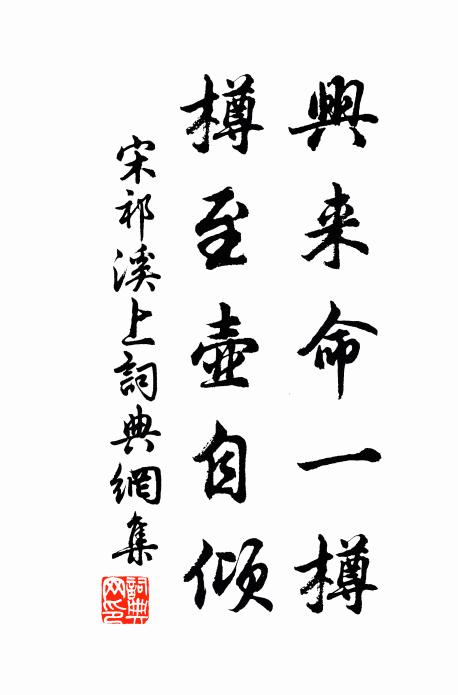 興来命一樽
樽至壺自傾
宋祁溪上詞典網集